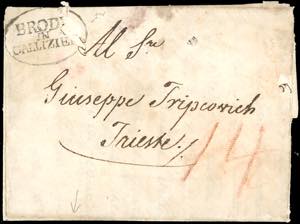 BRODY
IN
GALLIZIEN
Al Sr.
Giuseppe Tripcovich
Trieste
14